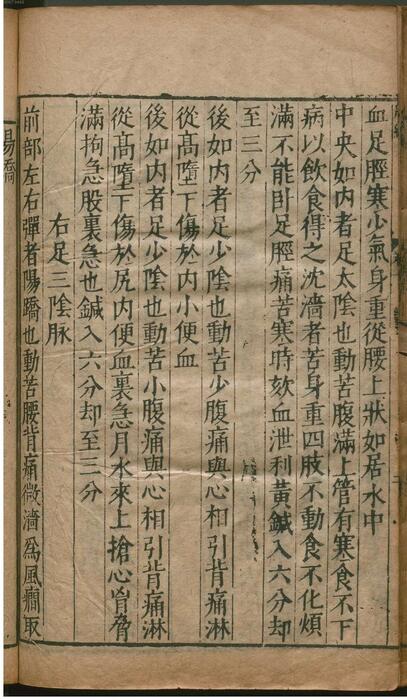 血足脛寒少氣身重從腰上狀如居水中
中央如内者足太陰也動苦腹滿上管有寒食不下
病以飲食得之沈濇者苦身重四肢不動食不化煩
滿不能卧足脛痛苦寒時欬血泄利黃鍼入六分却
至三分
後如内者足少陰也動苦少腹痛與心相引背痛淋
從高墮下傷於内小便血
後如内者足少陰也動苦小腹痛與心相引背痛淋
從高墮下傷於尻内便血裏急月水來上搶心胷脅
滿拘急股裏急也鍼入六分却至三分
右足三陰脉
前部左右彈者陽蹻也動苦腰背痛微濇爲風癇取
陽蹻